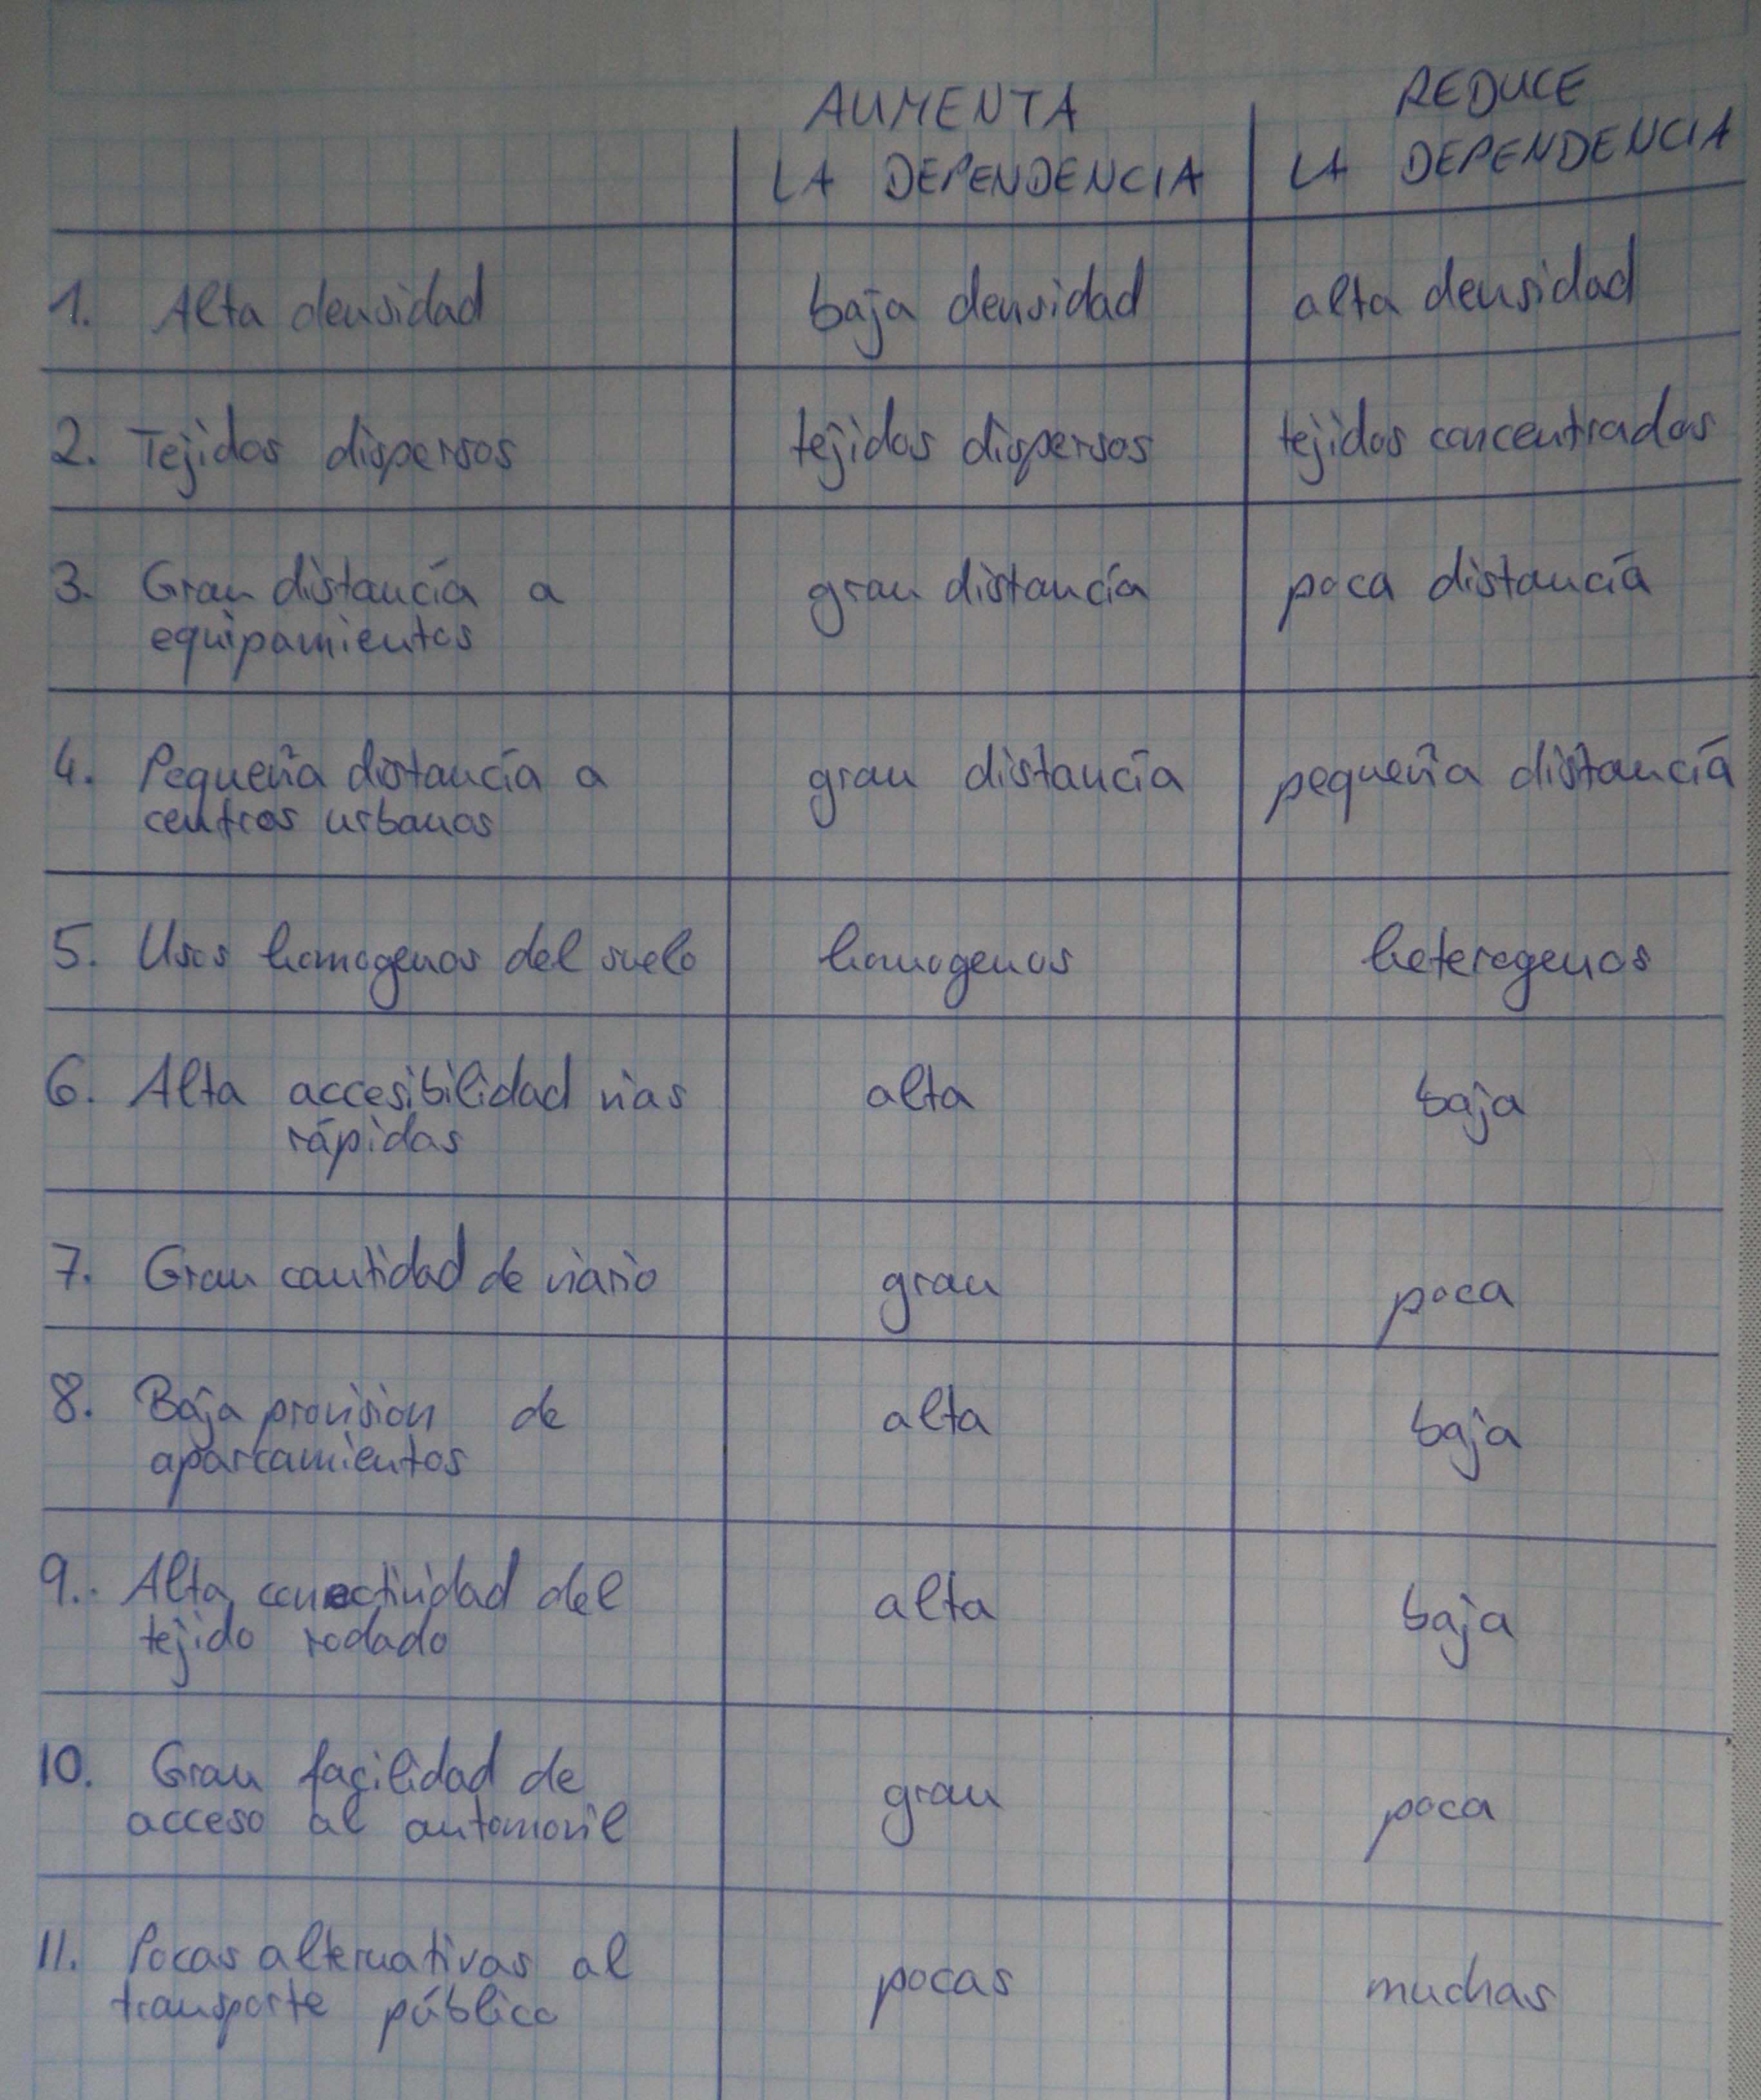 AUMENTA
LA DEPENDENCIA
REDUCE
LA DEPENDENCIA
1. Alta densidad
baja densidad
alta densidad
2. Tejidos dispersos
tejidos dispersos
tejidos concentrados
3. Gran distancía a
equipamientos
gran distancía
poca distancía
4. Pequeña distancía a
centros urbanos
gran distancía
pequeña distancía
5. Usos homogenos del suelo
homogenos
heterogenos
6. Alta accesibilidad vias
rápidas
alta
baja
7. Gran cantidad de viario
gran
poca
8. Baja provision de
aparcamientos
alta
baja
9. Alta conectividad del
tejido rodado
alta
baja
10. Gran facilidad de
acceso al automovil
gran
poca
11. Pocas alternativas al
transporte público
pocas
muchas